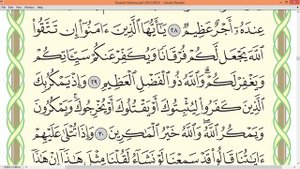 عِندَهُۥٓ أَجْرٌ عَظِيمٌ ٢٨ يَٰٓأَيُّهَا ٱلَّذِينَ ءَامَنُوٓا۟ إِن تَتَّقُوا۟
ٱللَّهَ يَجْعَل لَّكُمْ فُرْقَانًا وَيُكَفِّرْ عَنكُمْ سَيِّـَٔاتِكُمْ
وَيَغْفِرْ لَكُمْ وَٱللَّهُ ذُو ٱلْفَضْلِ ٱلْعَظِيمِ ٢٩ وَإِذْ يَمْكُرُ بِكَ
ٱلَّذِينَ كَفَرُوا۟ لِيُثْبِتُوكَ أَوْ يَقْتُلُوكَ أَوْ يُخْرِجُوكَ وَيَمْكُرُونَ
وَيَمْكُرُ ٱللَّهُ وَٱللَّهُ خَيْرُ ٱلْمَٰكِرِينَ ٣٠ وَإِذَا تُتْلَىٰ عَلَيْهِمْ
ءَايَٰتُنَا قَالُوا۟ قَدْ سَمِعْنَا لَوْ نَشَآءُ لَقُلْنَا مِثْلَ هَٰذَآ إِنْ هَٰذَآ